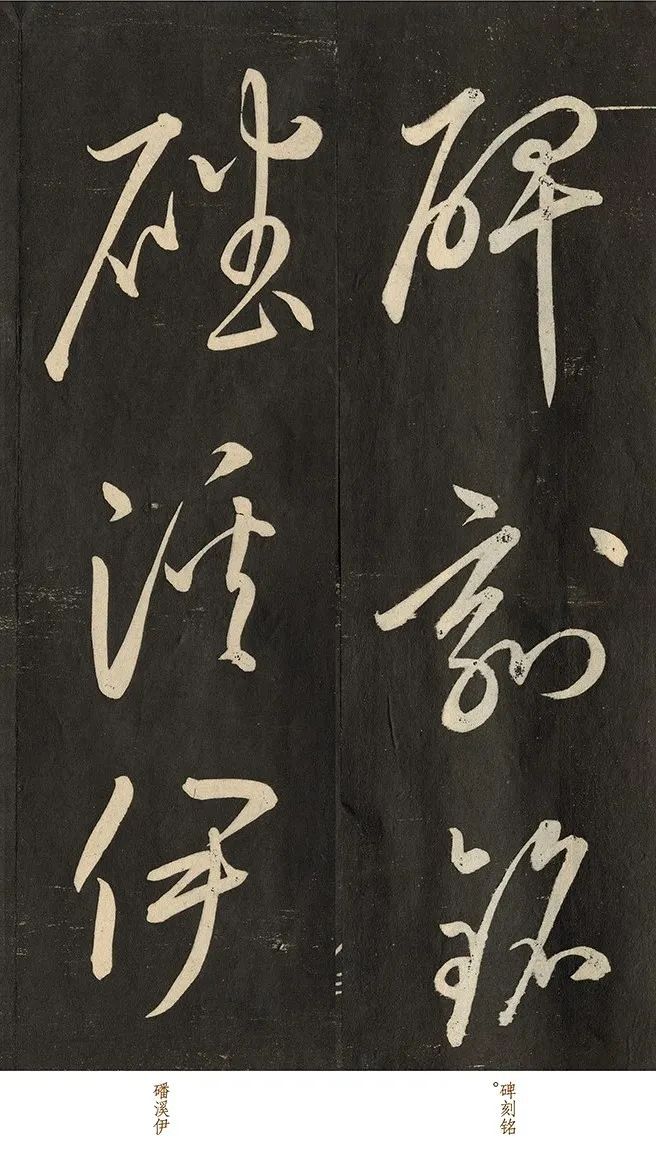 碑刻銘
磻溪伊
碑刻铭。
磻溪伊